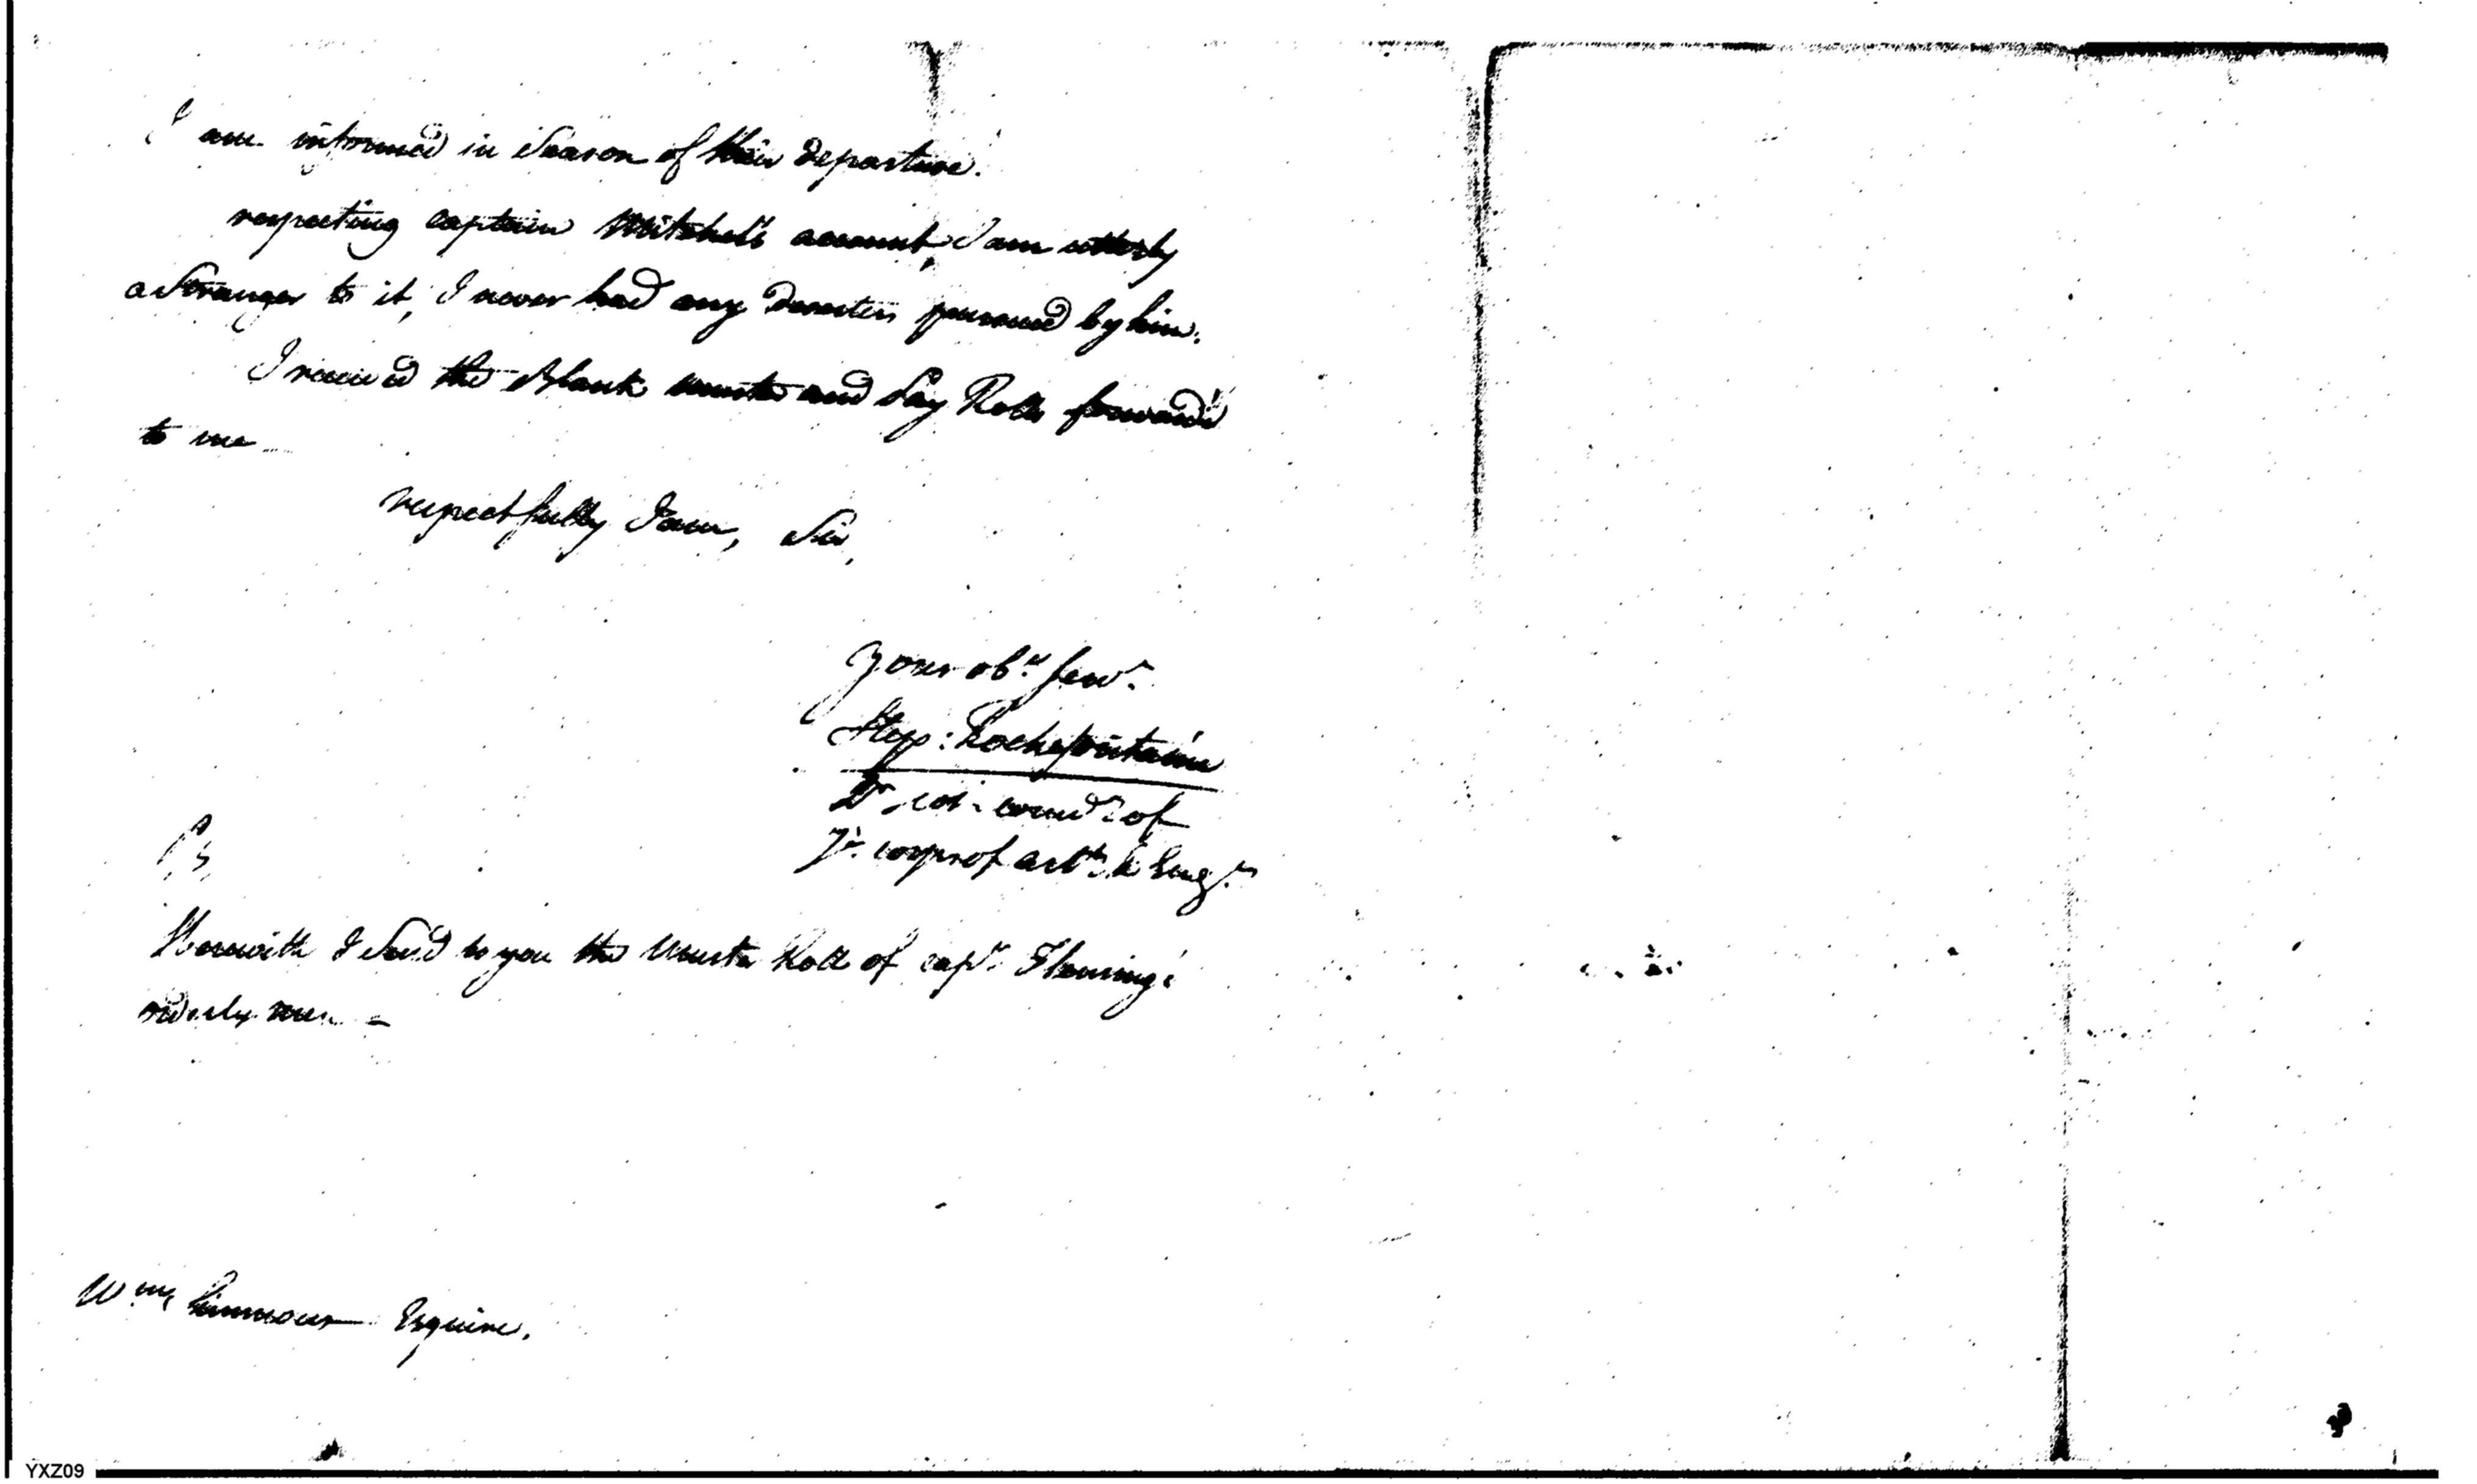 I am informed in Season of their departure.
respecting captain Mitchel's account, I am utterly
a Stranger to it, I never had any deserters pursued by him.
I received the Blank muster and Pay Rolls forward'd
to me
respectfully I am, Sir,
Your obt. Serv.
Step: Rochefontaine
Lt. col. comdt. of
ye. corps of art. & Eng.rs
Ps
Herewith I Send to you the muster Roll of capt. Fleming's
orderly men -
Wm. Simmons Esquire.
YXZ09